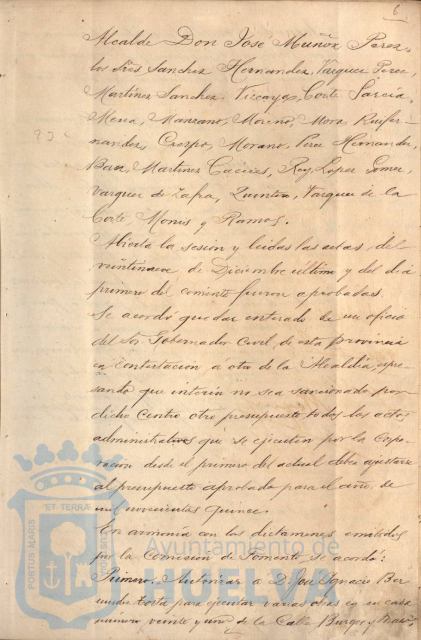 6
Alcalde Don José Muñoz Perez,
los Sres Sanchez Hernandez, Vázquez Perez,
Martinez Sanchez, Vizcaya, Corte Garcia,
Mesa, Manzano, Moreno, Mora, Ruifer-
nandez, Crespo, Morano, Perez Hernandez,
Baez, Martinez Caceres, Rey, Lopez Gomez,
Vazquez de Zafra, Quintero, Vazquez de la
Corte, Monis y Ramos.
Abierta la sesión y leidas las actas del
veintinueve de Diciembre último y del dia
primero del corriente fueron aprobadas.
Se acordó quedar enterado de un oficio
del Sor Gobernador Civil de esta provincia
en contestacion á otro de la Alcaldia, expre-
sando que interin no sea sancionado por
dicho Centro otro presupuesto, todos los actos
administrativos que se ejecuten por la Corpo-
racion desde el primero del actual debe ajustarse
al presupuesto aprobado para el año de
mil novecientos quince.
En armonia con los dictamenes emitidos
por la Comision de Fomento se acordó:
Primero. Autorizar a D. José Ignacio Ber
para ejecutar varias obras en su casa
numero veinte y uno de la Calle Burgos y
PORTUS MARIS
ET TERRÆ
CUSTODIA
Ayuntamiento de
HUELVA